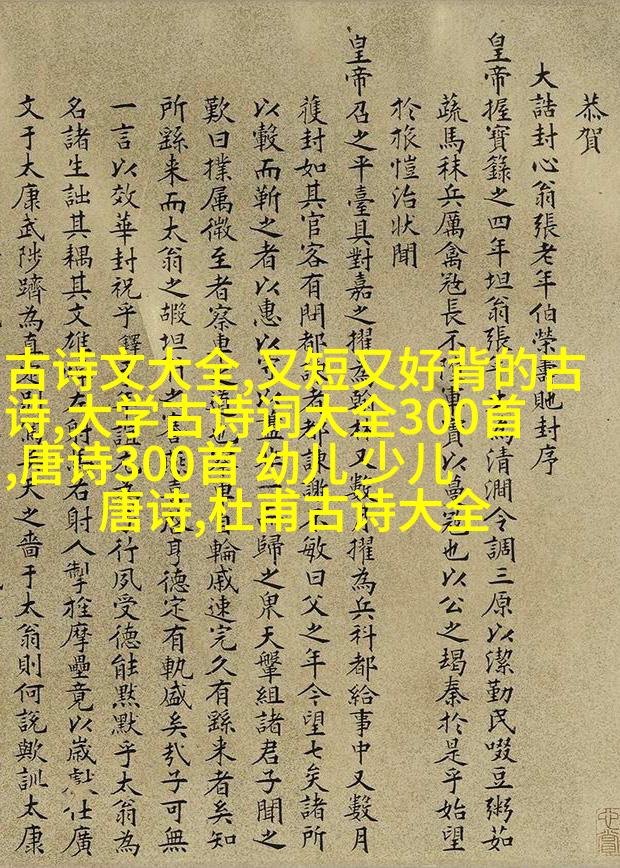 恭賀
大誥封心翁張老年伯榮壽貤封序
皇帝握寶籙之四年坦翁張清澗令調三原以潔勤民啜豆粥如
蔬馬秣兵厲禽冠長不以蕩冠也以公之竭秦於是乎始望
於旅愷治狀聞
皇帝召之平臺具對嘉之擢為又數擢為兵科都給事中又數月
獲封如其官客有問都敏曰父之年今望七矣諸所
以轂而靳之者以惠歸之果天組諸君子聞之
歎曰撲属微至者察車輪戚速完久有繇来者矣知
所繇来而太翁之嘏坦享德定有軌盛矣哉子可無
一言以效華封祝乎行夙受德能黙默乎太翁為
名諸生詘其耦其文雄右射人掣摩壘竟以歲獻仕廣
文于太康武陟躋為直天之嗇于太翁則何說歟訓太康
古诗文大全,又短又好背的古
诗,大学古诗词大全300首
,唐诗300首 幼儿 少儿
唐诗,杜甫古诗大全